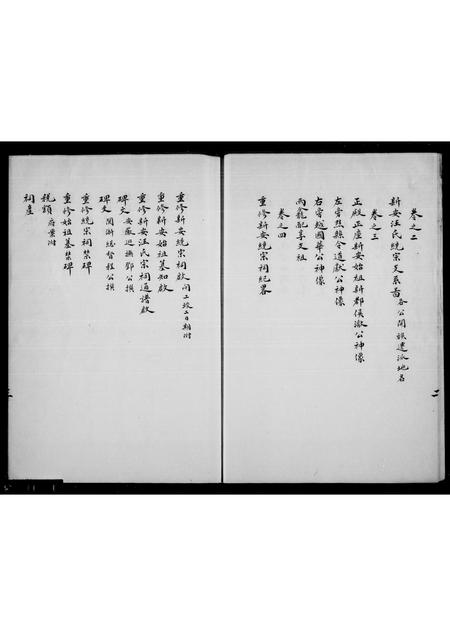 卷之二
新安汪氏統宗支系啚各公開族遷派地名
卷之三
正殿正座新安始祖新都侯澈公神像
左旁黟縣令道獻公神像
右旁越國華公神像
兩龕配享支祖
卷之四
重修新安統宗祠紀畧
二
重修新安統宗祠啟開工竣工日期附
重修新安始祖墓知啟
重修新安汪氏宗祠通譜啟
碑文安徽廵撫鄧公撰
碑文閩浙總督程公撰
重修統宗祠禁碑
重修始祖墓禁碑
稅額
祠產
三